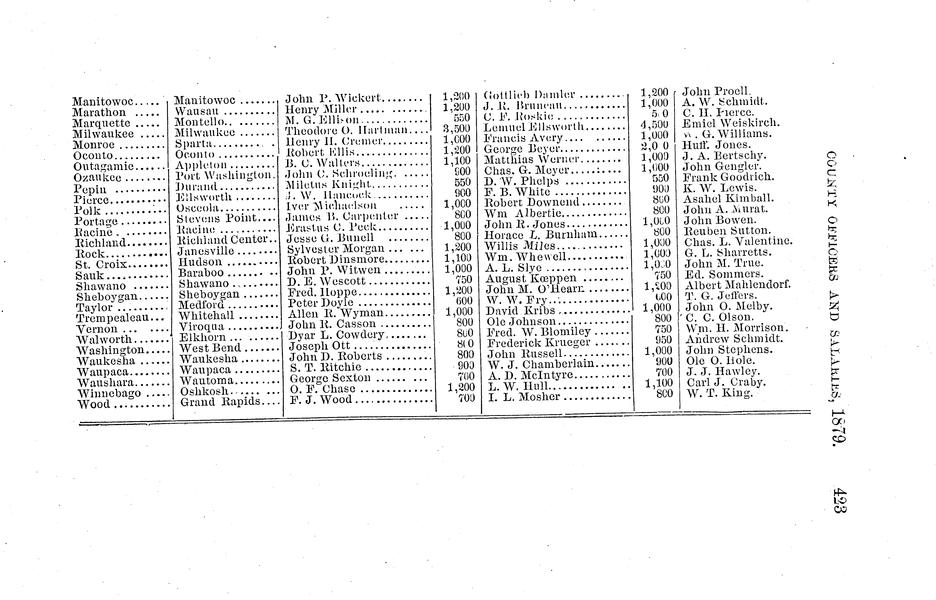 Manitowoc..... Manitowoc ....... John P. Wickert........ 1,200 Gottlieb Damler ......... 1,200 John Proell.
Marathon ..... Wausau ........ Henry Miller .... ..... 1,200 J. R. Bruneau........... 1,000 A. W. Schmidt.
Marquette ..... Montello.. ...... M. G. Ellison........... 550 C. F. Roskie ........... 5 0 C. H. Pierce.
Milwaukee ..... Milwaukee ...... Theodore O. Hartman.... 3,500 Lemuel Ellsworth........ 4,500 Emiel Weiskirch.
Monroe ....... Sparta........... Henry H. Cremer........ 1,000 Francis Avery.... ...... 1,000 G. Williams.
Oconto........ Oconto .......... Robert Ellis........... 1,200 George Beyer........... 2,0 0 Huff. Jones.
Outagamie..... Appleton ........ B. C. Walters.......... 1,100 Matthias Werner........ 1,000 J. A. Bertschy.
Ozaukee ...... Port Washington. John C. Schroeling. .... 900 Chas. G. Meyer.......... 1,000 John Gengler.
Pepin ........ Durand .......... Miletus Knight.......... 550 D. W. Phelps .......... 550 Frank Goodrich.
Pierce......... Ellsworth ....... J. W. Hancock.......... 900 F. B. White ........... 900 K. W. Lewis.
Polk ......... Osceola.......... Iver Michaelson ..... 1,000 Robert Downend ........ 800 Asahel Kimball.
Portage ....... Stevens Point.... James B. Carpenter ..... 800 Wm Albertie............ 800 John A. Murat.
Racine ........ Racine .......... Erastus C. Peck........ 1,000 John R. Jones........... 1,000 John Bowen.
Richland....... Richland Center.. Jesse G. Bunell ....... 800 Horace L. Burnham...... 800 Reuben Sutton.
Rock.......... Janesville ....... Sylvester Morgan ... ... 1,200 Willis Miles............ 1,000 Chas. L. Valentine.
St. Croix...... Hudson .......... Robert Dinsmore........ 1,100 Wm. Whewell........... 1,000 G. L. Sharretts.
Sauk.......... Baraboo ...... .. John P. Witwen ........ 1,000 A. L. Slye ............ 1,000 John M. True.
Shawano ...... Shawano ........ D. E. Wescott .......... 750 August Kœppen ......... 750 Ed. Sommers.
Sheboygan..... Sheboygan ....... Fred. Hoppe............ 1,200 John M. O'Hearn ....... 1,200 Albert Mahlendorf.
Taylor ........ Medford ......... Peter Doyle ........... 600 W. W. Fry............. 600 T. G. Jeffers.
Trempealeau... Whitehall ....... Allen R. Wyman......... 1,000 David Kribs ........... 1,000 John O. Melby.
Vernon ... .... Viroqua ......... John R. Casson ........ 800 Ole Johnson............ 800 C. C. Olson.
Walworth...... Elkhorn ... ...... Dyar L. Cowdery....... 800 Fred. W. Blomiley ...... 750 Wm. H. Morrison.
Washington..... West Bend ....... Joseph Ott ............. 800 Frederick Krueger ...... 950 Andrew Schmidt.
Waukesha ..... Waukesha ....... John D. Roberts ........ 800 John Russell............ 1,000 John Stephens.
Waupaca....... Waupaca ........ S. T. Ritchie ........... 900 W. J. Chamberlain....... 900 Ole O. Hole.
Waushara...... Wautoma ........ George Sexton ...... ... 700 A. D. McIntyre......... 700 J. J. Hawley.
Winnebago .... Oshkosh..... ... O. F. Chase ............ 1,200 L. W. Hull.............. 1,100 Carl J. Craby.
Wood .......... Grand Rapids.... F. J. Wood............. 700 I. L. Mosher ........... 800 W. T. King.
COUNTY OFFICERS AND SALARIES, 1879. 423